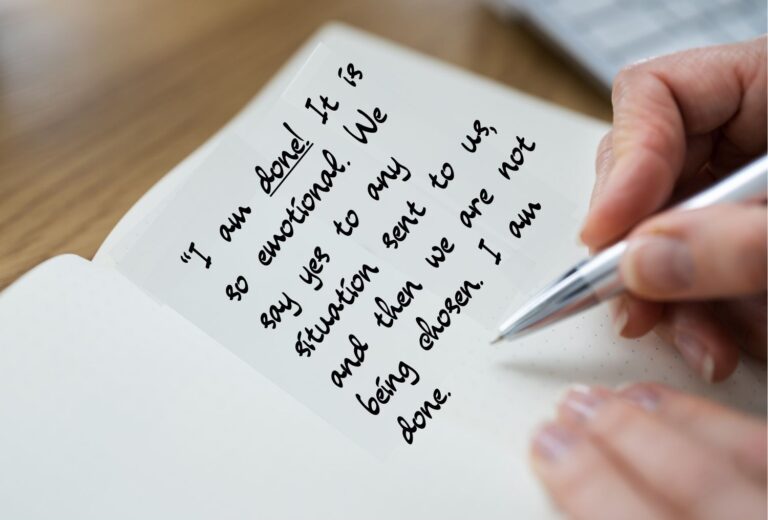 "I am done! It is
so emotional. We
say yes to any
situation sent to us,
and then we are not
being chosen. I am
done.